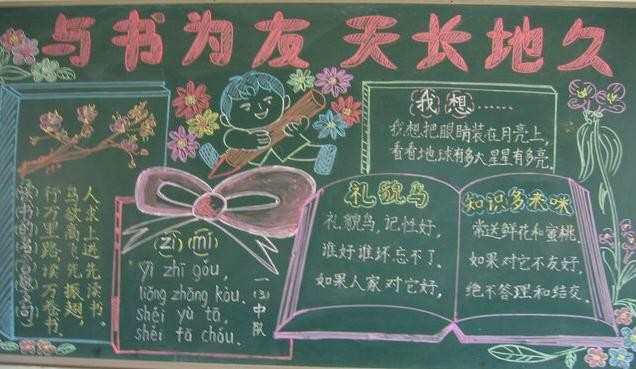 与书为友 天长地久
读书的名言警句
行万里路，读万卷书。
鸟欲高飞先振翅，
人求上进先读书。
zì mí
yì zhī gǒu,
liǎng zhāng kǒu,
shéi yù tā,
shéi fā chóu.
一(3)中队
我想……
我想把眼睛装在月亮上,
看看地球有多大星星有多亮.
礼貌鸟
礼貌鸟,记性好,
谁好谁坏忘不了.
如果人家对它好,
知识多来咪
常送鲜花和蜜桃.
如果对它不友好,
绝不答理和结交.